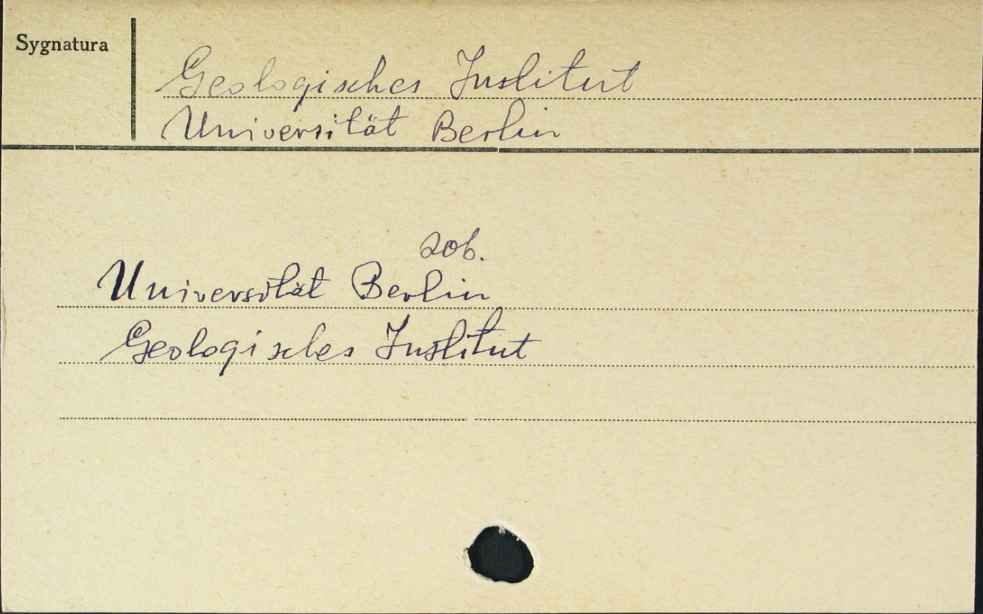 Sygnatura
Geologisches Institut
Universität Berlin
zob.
Universität Berlin
Geologisches Institut